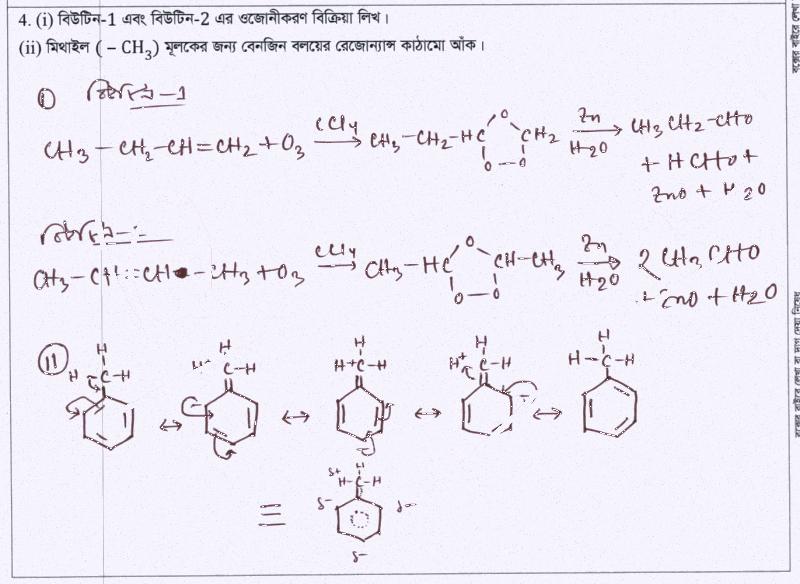 4. (i) বিউটিন-1 এবং বিউটিন-2 এর ওজোনীকরণ বিক্রিয়া লিখ।
(ii) মিথাইল (– CH₃) মূলকের জন্য বেনজিন বলয়ের রেজোন্যান্স কাঠামো আঁক।
i বিউটিন-1
CH₃ – CH₂ – CH = CH₂ + O₃ CCl₄ → CH₃ – CH₂ – HC O CH₂ O – O Zn H₂O → CH₃ CH₂ – CHO
+ HCHO +
ZnO + H₂O
CH₃ – CH = CH – CH₃ + O₃ CCl₄ → CH₃ – HC O CH – CH₃ O – O Zn H₂O → 2 CH₃ CHO
+ ZnO + H₂O
ii
H H H H H
H C – H H⁺ C – H H⁺ C – H H⁺ C – H H – C – H
↔ ↔ ↔ ↔
≡ δ+ H H – C – H
δ– δ–
δ–